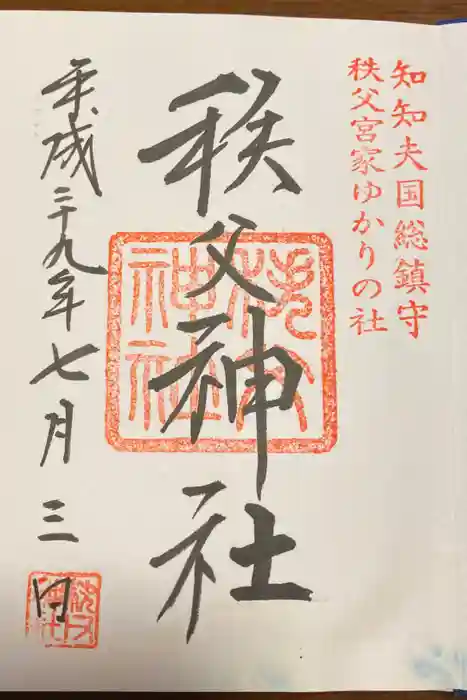 知知夫国総鎮守
秩父宮家ゆかりの社
秩父神社
秩父神社
平成二十九年七月三日